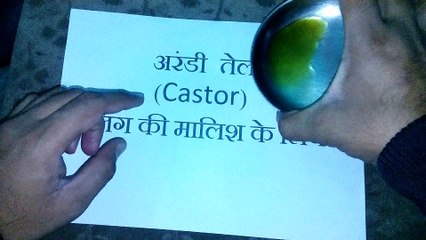 अरंडी तेल
(Castor)
की मालिश के